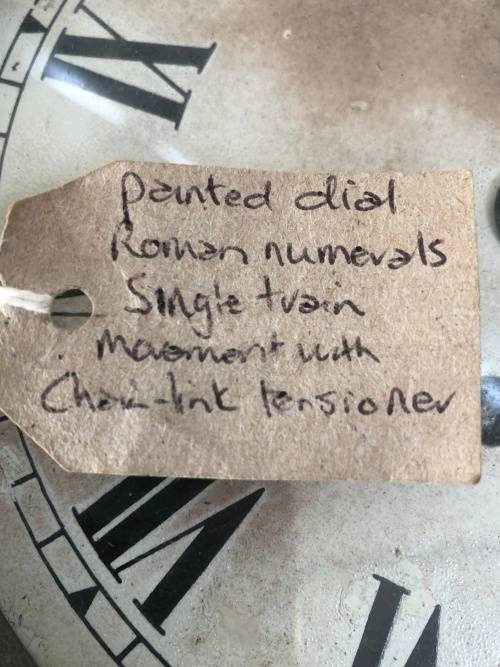 XI
painted dial
Roman numerals
Single train
movement with
Chain-link tensioner
VIII
VII